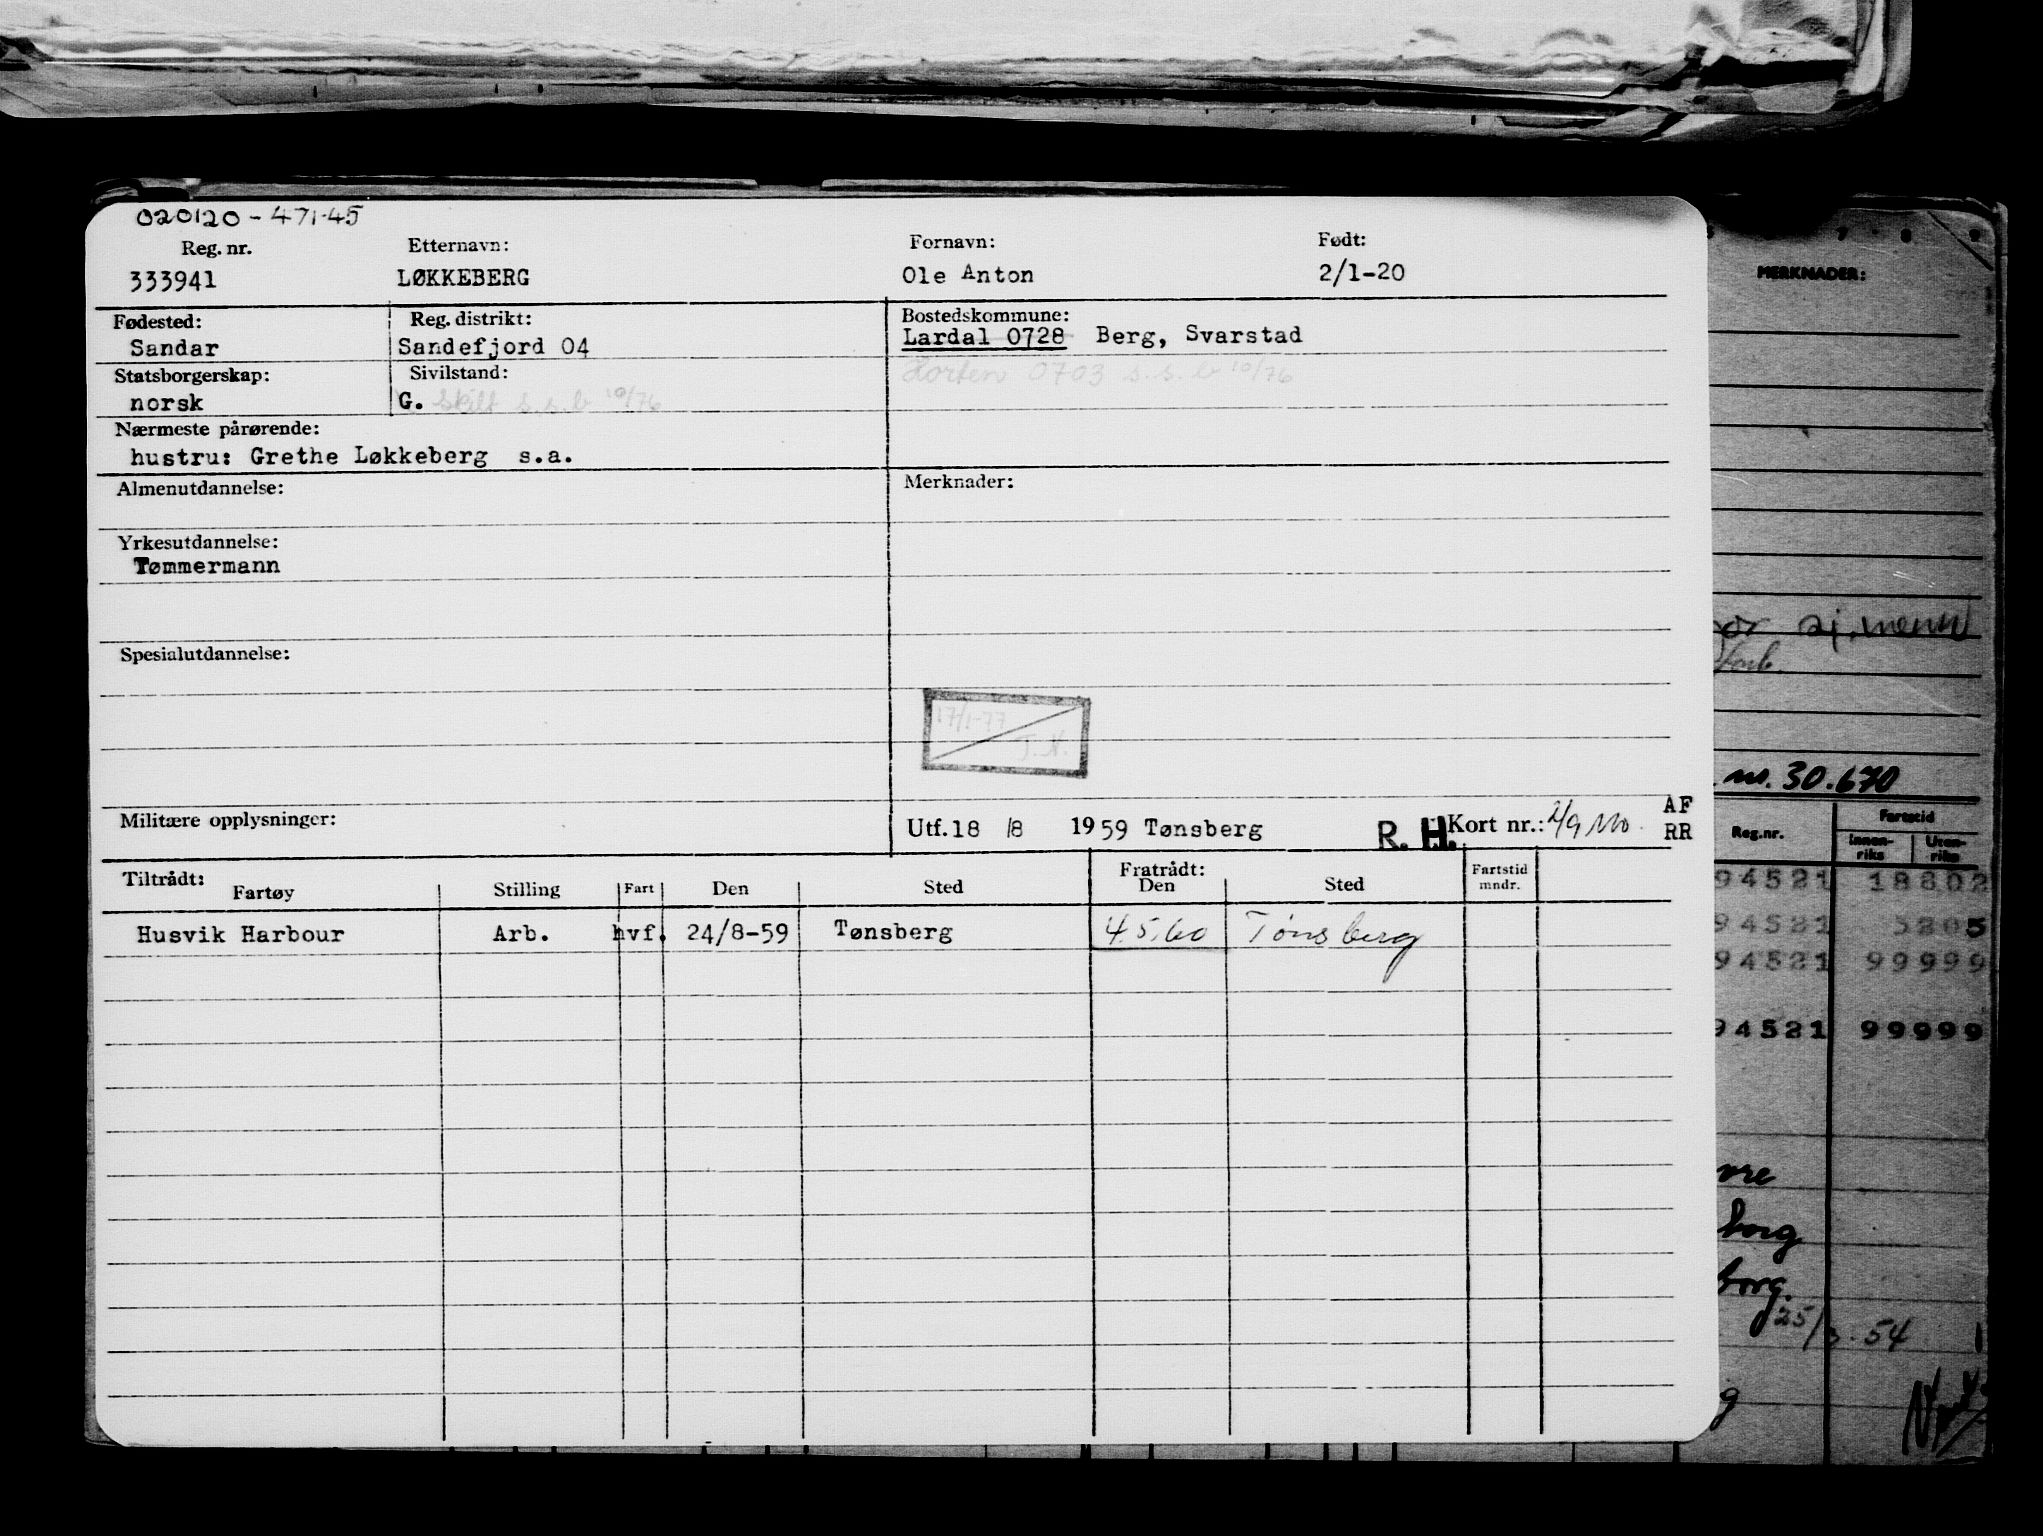 020120 - 471.45
Reg. nr. Etternavn: Fornavn: Født:
333941 LØKKEBERG Ole Anton 2/1-20
Fødested: Reg. distrikt: Bostedskommune:
Sandar Sandefjord 04 Lardal 0728 Berg, Svarstad
Statsborgerskap: Sivilstand: Horten 0703 s.s.b 10/76
norsk G. Skilt s.s.b 10/76
Nærmeste pårørende:
hustru: Grethe Løkkeberg s.a.
Almenutdannelse: Merknader:
Yrkesutdannelse:
Tømmermann
Spesialutdannelse:
17/1-77
J.N.
Militære opplysninger: Utf. 18/8 1959 Tønsberg R. H. Kort nr.: AF
RR
Tiltrådt: Fratrådt: Fartstid
Fartøy Stilling Fart Den Sted Den Sted mndr.
Husvik Harbour Arb. hvf. 24/8-59 Tønsberg 4.5.60 Tønsberg
7 8 9
MERKNADER:
sj.menn
nr. 30.670
Reg.nr. Fartstid
Innen-riks Uten-riks
94521 18802
94521 5205
94521 99999
94521 99999
borg
borg.
25/3.54